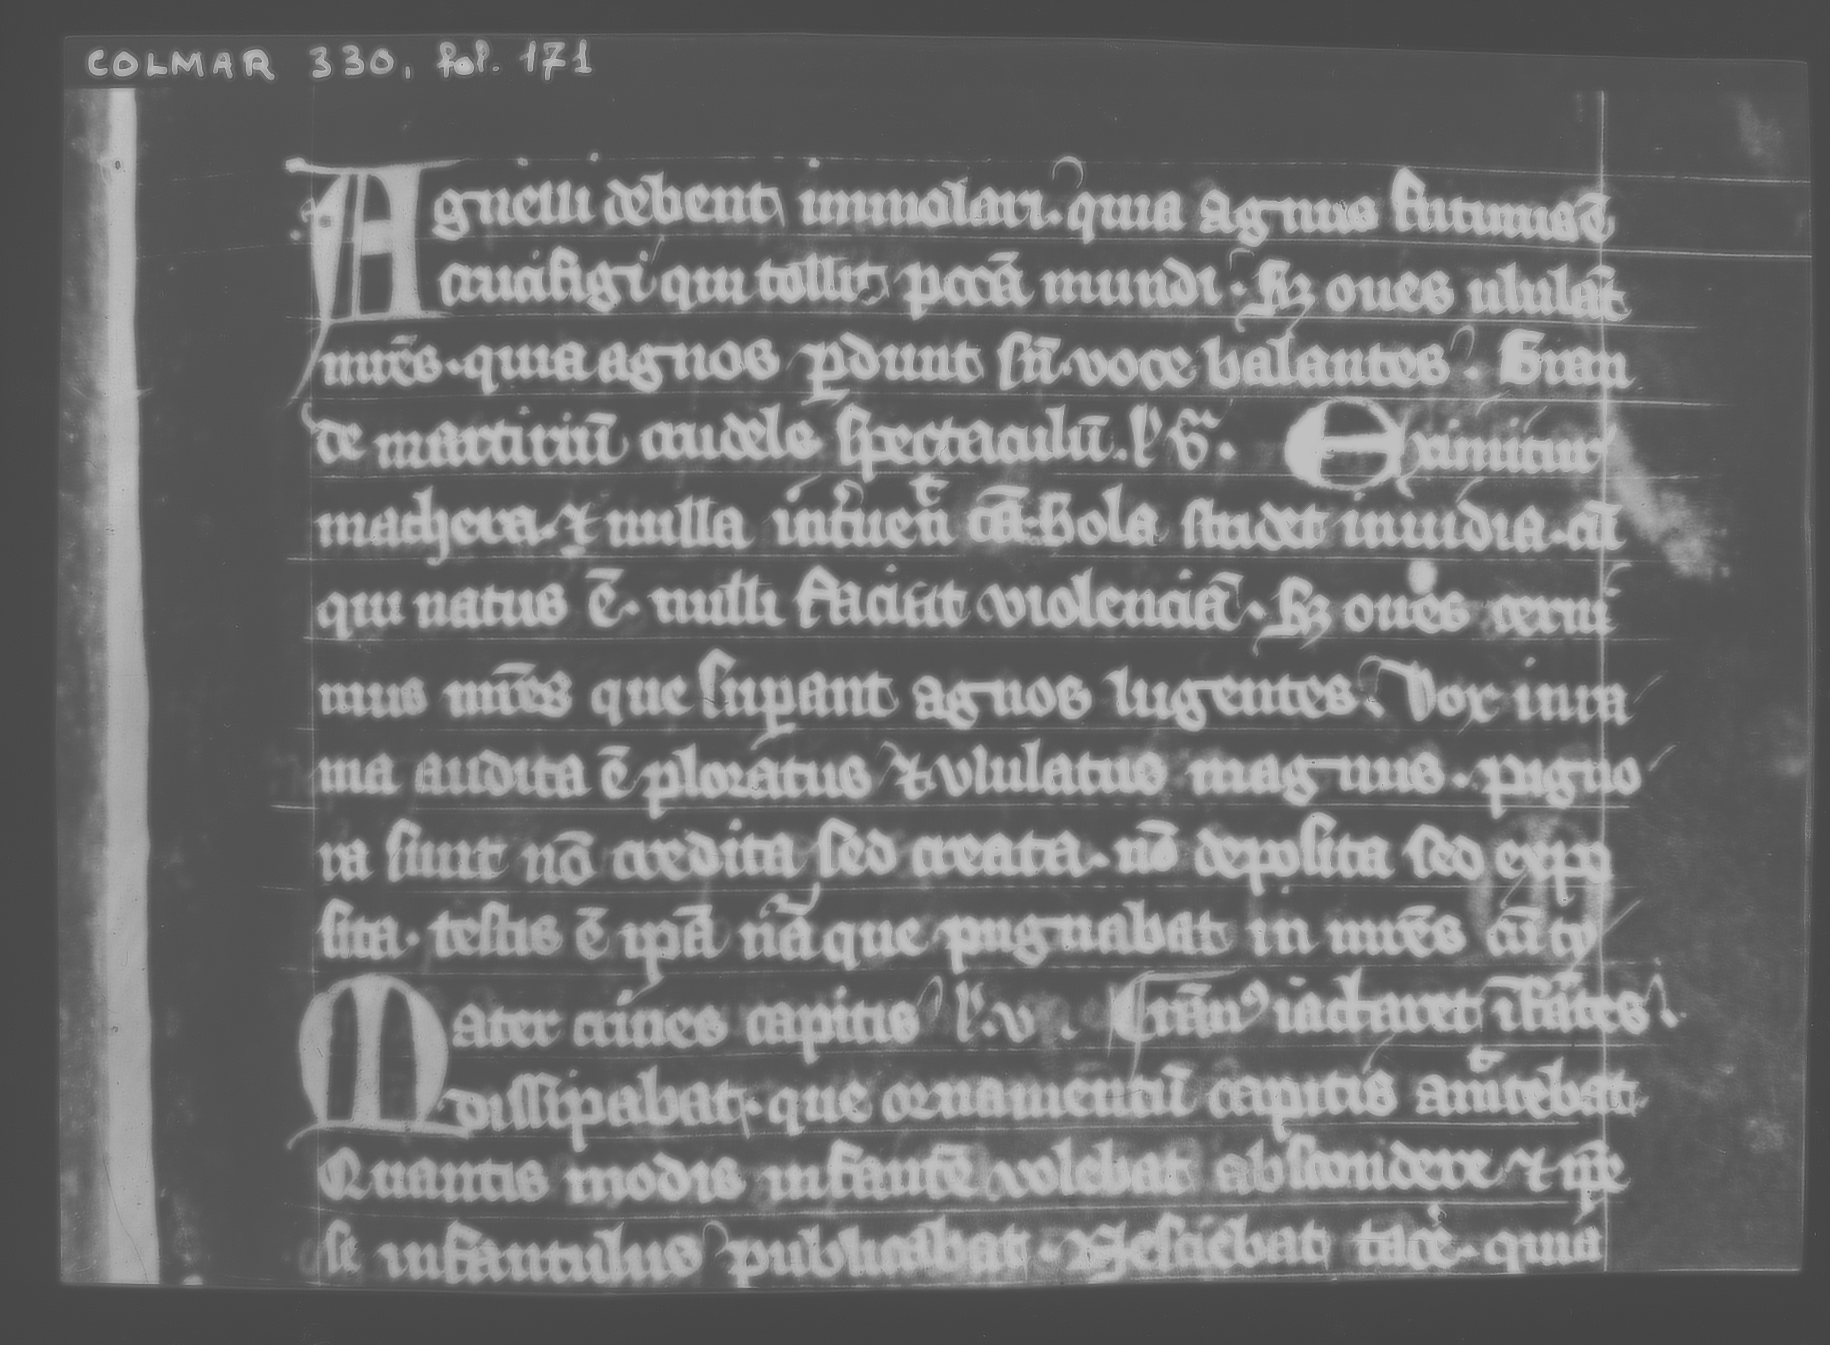 COLMAR 330, fol. 171
Agnelli debent immolari. quia agnus futurus ē
crucifigi qui tollit pccā mundi. Sꝫ oues ululāt
mr̄es. quia agnos ꝑdunt sn̄. voce balantes. Gran
de martiriū crudele spectaculū. l' vͣ. Eximitur
machera. ⁊ nulla int̓uen̄ᵗ cā. Sola studet inuidia. cū
qui natus ē. nulli faciat violenciā. Sꝫ oues cerni
mus mr̄es que suꝑant agnos lugentes. Vox in ra
ma audita ē ploratus ⁊ vlulatus magnus. pigno
ra sunt nō credita sed creata. nō deposita sed expo
sita. testis ē ipā nā que pugnabat in mr̄es cū cō
Mater crines capitis l'. v. Trān⁹ iactaret īfātes.
dissipabat. que ornamentū capitis am̄ᵗtebat.
Quantis modis infantē volebat abscondere ⁊ ip̄e
se infantulus publicabat. Nesciebat tac̓e. quia